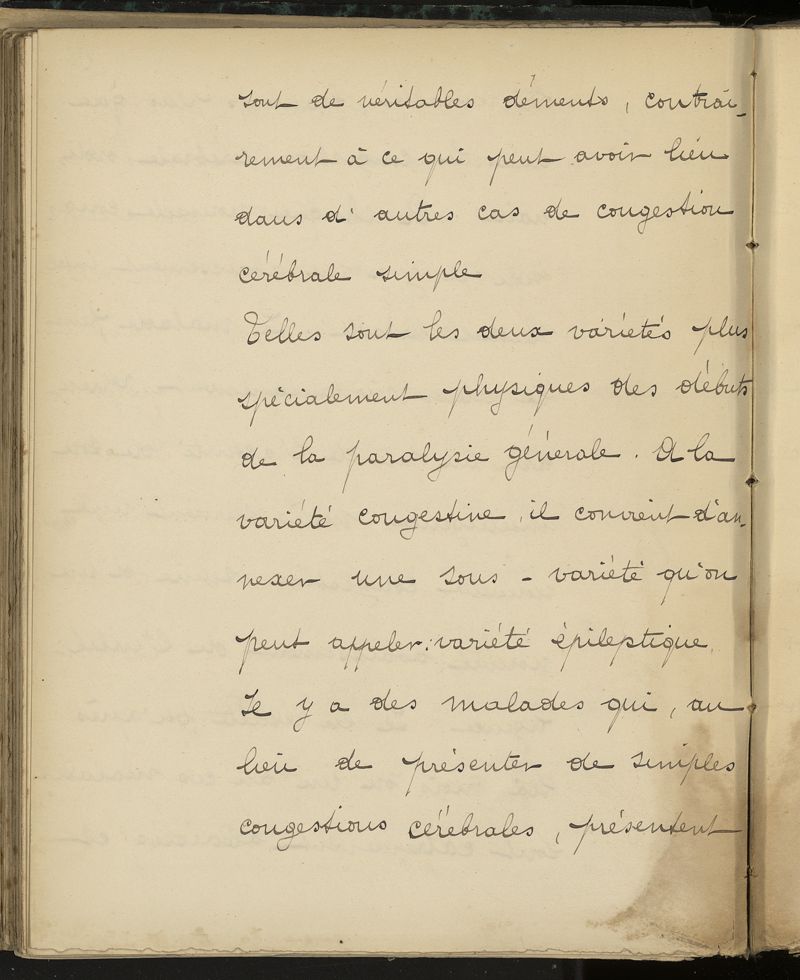 sont de véritables déments, contrai-
rement à ce qui peut avoir lieu
dans d'autres cas de congestion
cérébrale simple
Telles sont les deux variétés plus
spécialement physiques des débuts
de la paralysie générale. A la
variété congestive, il convient d'an-
nexer une sous-variété qu'on
peut appeler: variété épileptique.
Il y a des malades qui, au
lieu de présenter de simples
congestions cérébrales, présentent